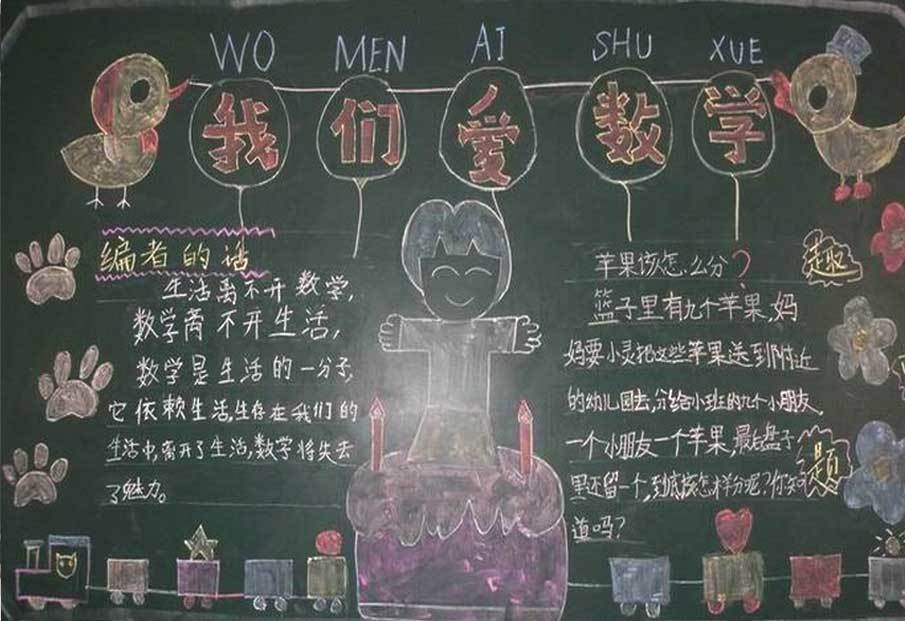 WO MEN AI SHU XUE
我们爱数学
编者的话
生活离不开数学,
数学离不开生活,
数学是生活的一分子,
它依赖生活,生存在我们的
生活中,离开了生活,数学将失去
了魅力。
苹果该怎么分?
篮子里有九个苹果,妈
妈要小灵把这些苹果送到附近
的幼儿园去,分给小班的九个小朋友。
一个小朋友一个苹果,最后盘子
里还留一个,到底该怎样分呢?你知
道吗?
趣
题